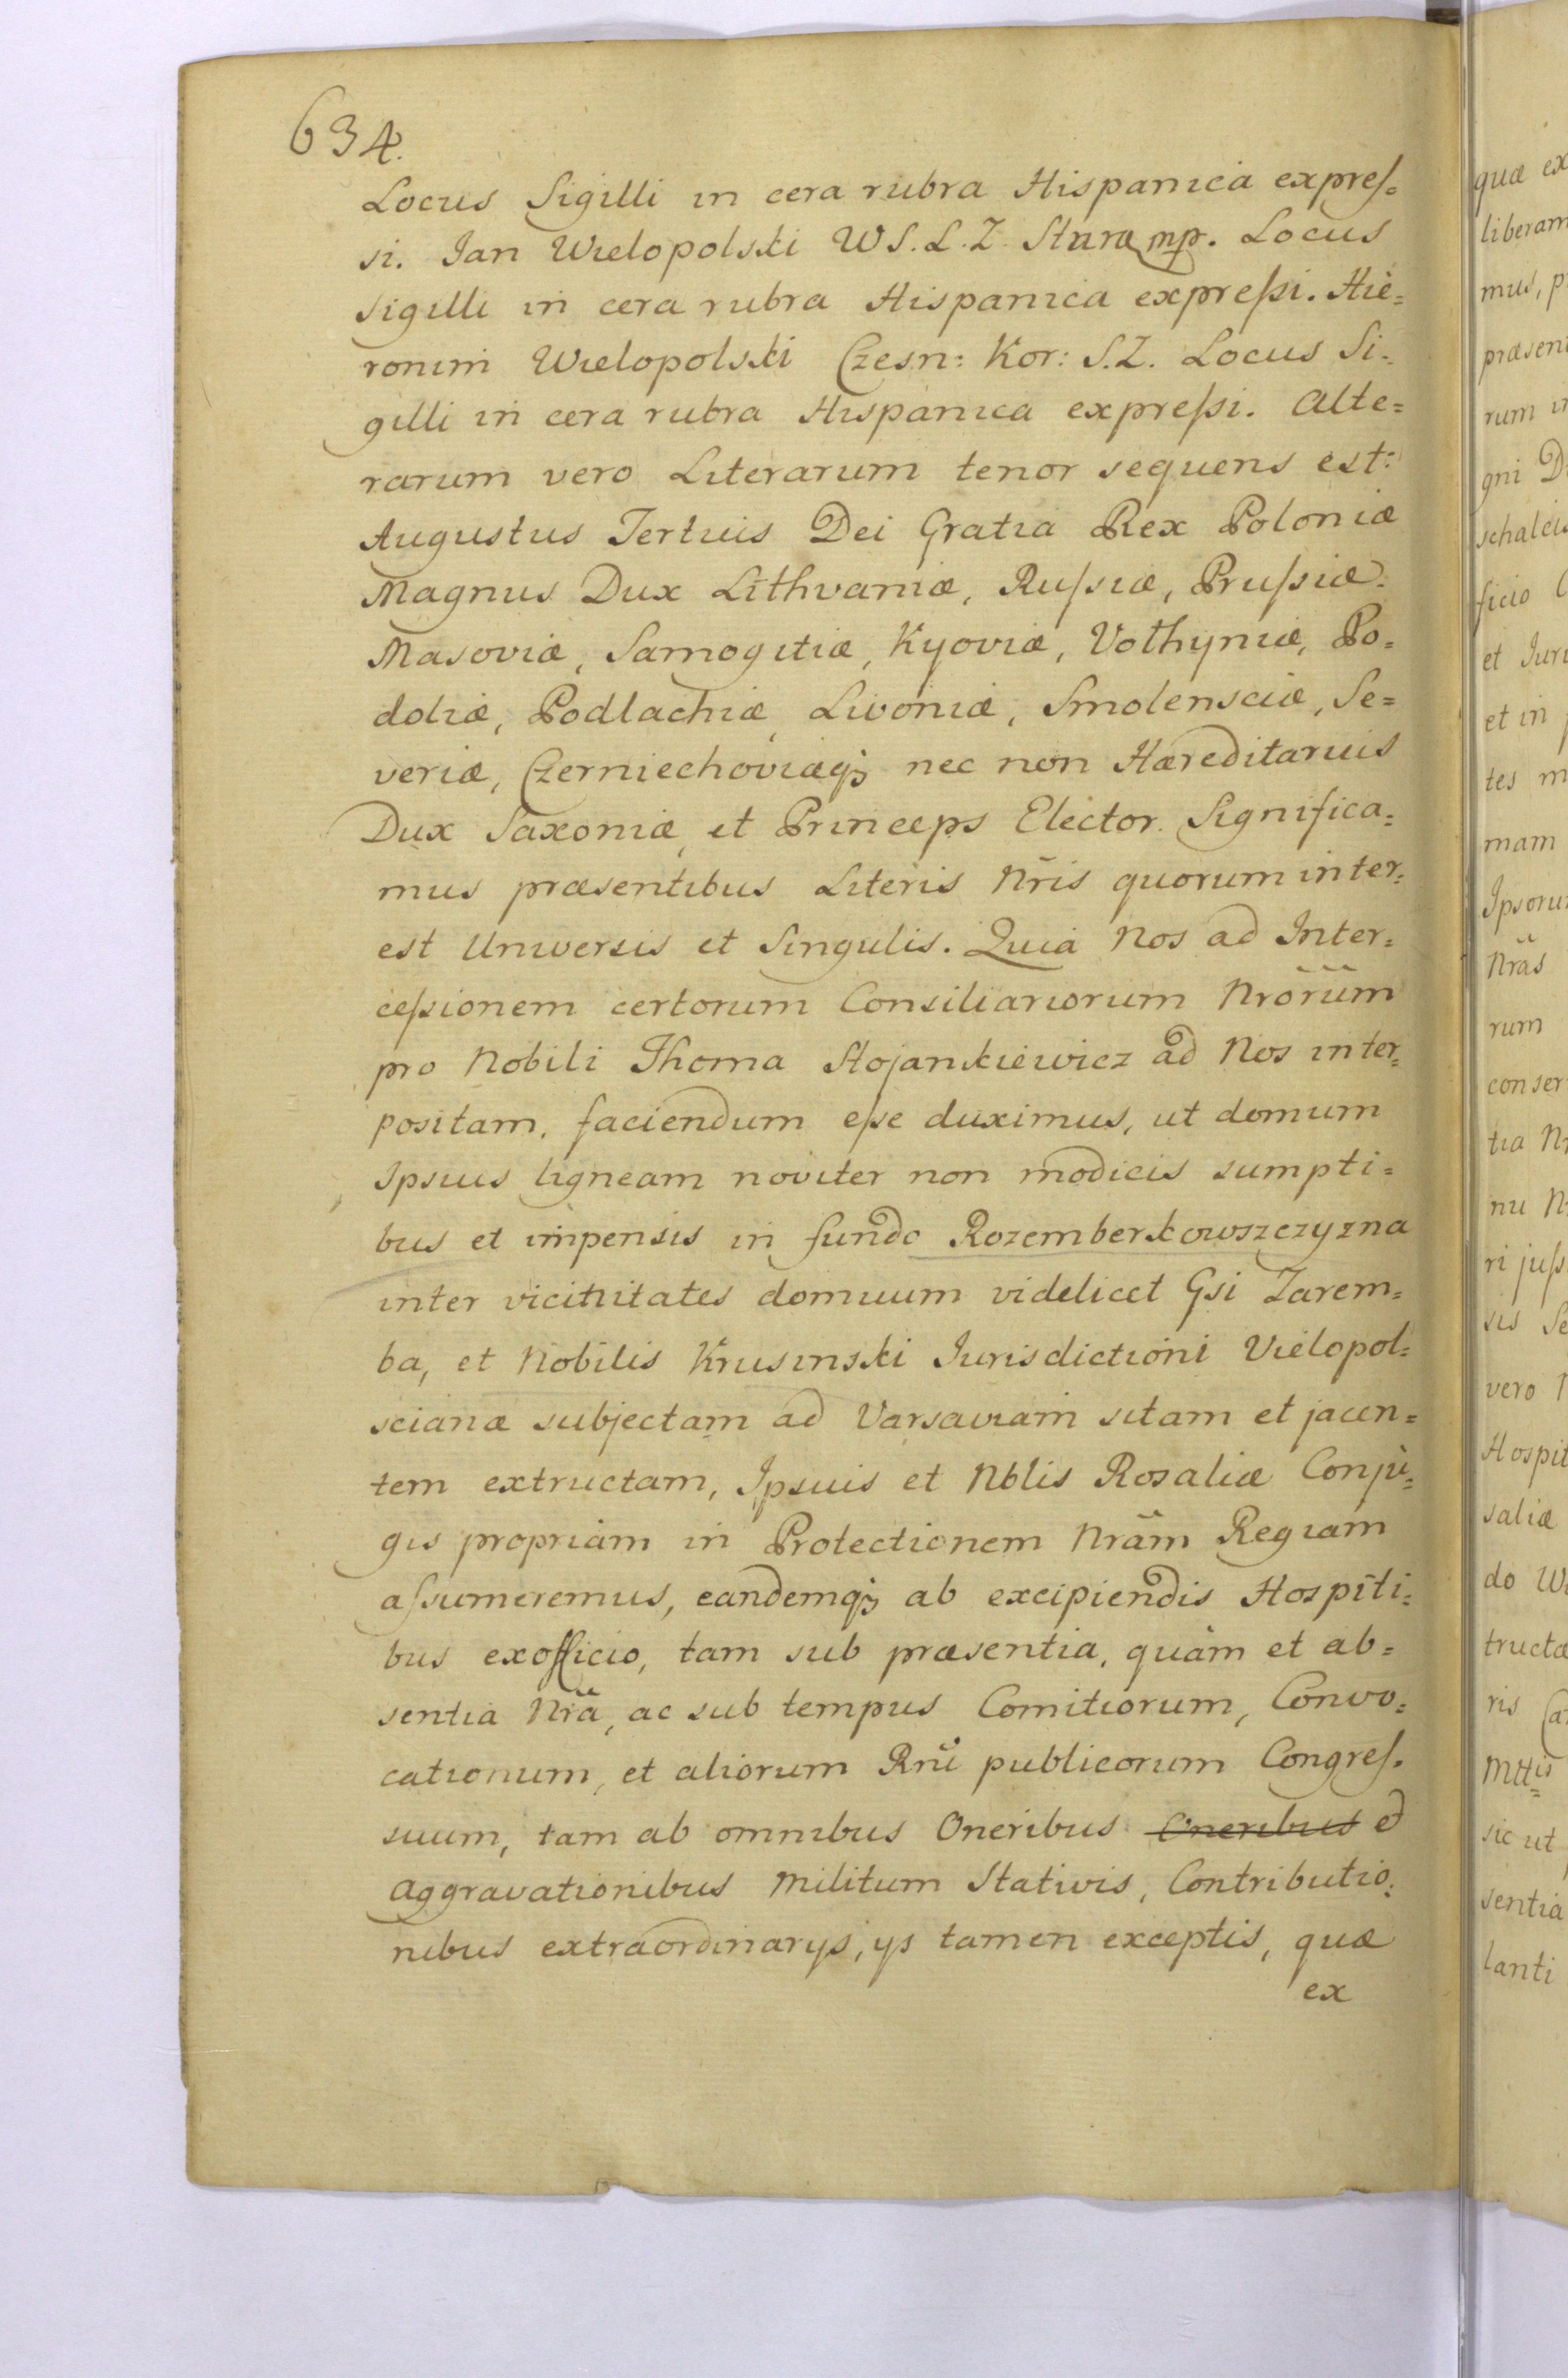 634.
Locus Sigilli in cera rubra Hispanica expres=
si. Jan Wielopolski W S. L. Z. Starᴂ mp. Locus
Sigilli in cera rubra Hispanica expreſsi. Hie=
ronim Wielopolski Czesn: Kor: S. Z. Locus Si=
gilli in cera rubra Hispanica expreſsi. Alte=
rarum vero Literarum tenor sequens est:
Augustus Tertius Dei Gratia Rex Poloniæ
Magnus Dux Lithvaniæ, Ruſsiæ, Pruſsiæ.
Masoviæ, Samogitiæ, Kyoviæ, Volhyniæ, Po=
doliæ, Podlachiæ, Livoniæ, Smolensciæ, Se=
veriæ, Czerniechoviæq; nec non Hæreditarius
Dux Saxoniæ, et Princeps Elector. Significa=
mus præsentibus Literis Nr̃is quorum inter=
est Universis et Singulis. Quia Nos ad Inter=
ceſsionem certorum Consiliariorum Nrõrũm
pro Nobili Thoma Stojankiewicz ad Nos inter=
positam, faciendum eſse duximus, ut domum
Ipsius ligneam noviter non modicis sumpti=
bus et impensis in fundo Rozemberkowszczyzna
inter vicinitates domuum videlicet Gsi Zarem=
ba, et Nobilis Krusinski Jurisdictioni Vielopol=
scianæ subjectam ad Varsaviam sitam et jacen=
tem extructam, Ipsius et Nblis Rosaliæ Conju=
gis propriam in Protectionem Nrãm Regiam
aſsumeremus, eandemq; ab excipiendis Hospiti=
bus exofficio, tam sub præsentia, quàm et ab=
sentia Nrã, ac sub tempus Comitiorum, Convo=
cationum, et aliorum Rnĩ publicorum Congreſ=
suum, tam ab omnibus Oneribus Oneribus et
Aggravationibus Militum Stativis, Contributio=
nibus extraordinarys, ys tamen exceptis, quæ
ex
quæ ex
liberam
mus, p
præsen
rum in
gni D
schalcu
ficio
et Juri
et in
tes m
mam
Ipsoru
Nrãs
rum
conser
tia N
nu N
ri juſs
sis Se
vero
Hospit
saliæ
do W
tructæ
ris Ca
Mttis
sic ut
sentia
lanti